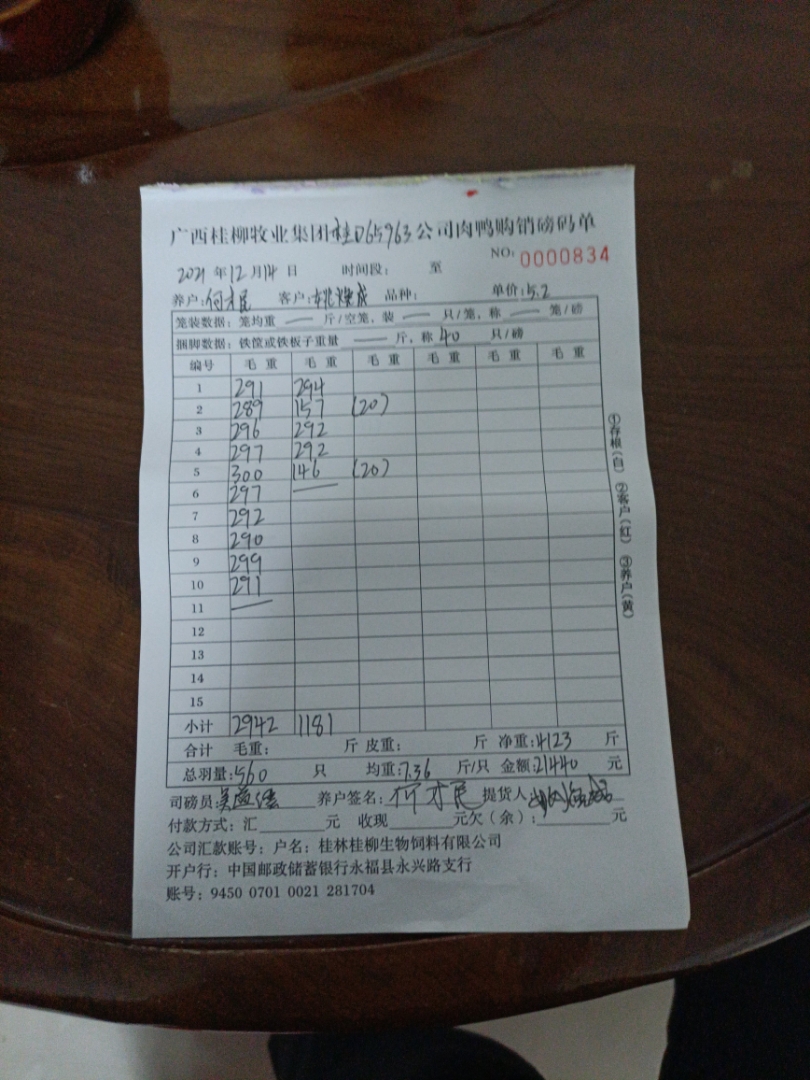 广西桂柳牧业集团桂D65963公司肉鸭购销磅码单
NO: 0000834
2021 年 12 月 14 日 时间段: 至
养户: 何才民 客户: 姚焕成 品种: 单价: 5.2
笼装数据: 笼均重 — 斤/空笼, 装 — 只/笼, 称 — 笼/磅
捆脚数据: 铁筐或铁板子重量 — 斤, 称 40 只/磅
编号 毛重 毛重 毛重 毛重 毛重 毛重
1 291 294
2 289 157 (20)
3 296 292
4 297 292
5 300 146 (20)
6 297 —
7 292
8 290
9 299
10 291
11 —
12
13
14
15
小计 2942 1181
合计 毛重: 斤 皮重: 斤 净重: 4123 斤
总羽量: 560 只 均重: 7.36 斤/只 金额: 21440 元
司磅员: 养户签名: 何才民 提货人
付款方式: 汇______元 收现______元欠(余):______元
公司汇款账号: 户名: 桂林桂柳生物饲料有限公司
开户行: 中国邮政储蓄银行永福县永兴路支行
账号: 9450 0701 0021 281704
①存根(白) ②客户(红) ③养户(黄)